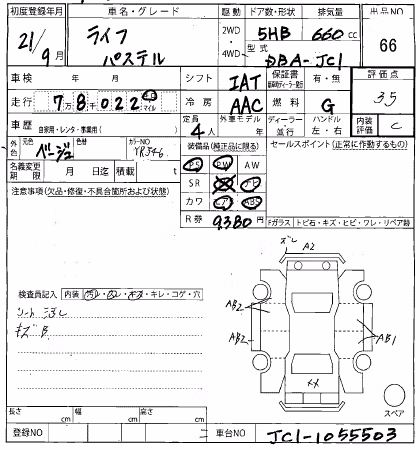 初度登録年月 車名・グレード 駆動 ドア数・形状 排気量 出品NO
21/9月 ライフ パステル 2WD・4WD 5HB 660cc 66
型式 DBA-JC1
車検 年 月 シフト IAT 保証書 有・無 評価点
走行 7万8千022 キロ マイル 冷房 AAC 燃料 G 3.5
車歴 自家用・レンタ・事業用( ) 定員 4人 外車モデル年 ディーラー・並行 ハンドル 左・右 内装評価 C
外色 元色 ベージュ 色替 カラーNO YR546 装備品(純正品に限る) セールスポイント(正常に作動するもの)
名義変更期限 月 日迄 積載 t PS PW AW
注意事項(欠品・修復・不具合箇所および状態) SR ナビ
カワ ABS
R券 9380円 Fガラス トビ石・キズ・ヒビ・ワレ・リペア跡
ズレ A2
検査員記入 内装 汚レ・スレ・キズ・キレ・コゲ・穴
シート汚レ
キズB
AB2
AB2
AB1
××
スペア
長さ cm 幅 cm 高さ cm
登録NO 車台NO JC1-1055503